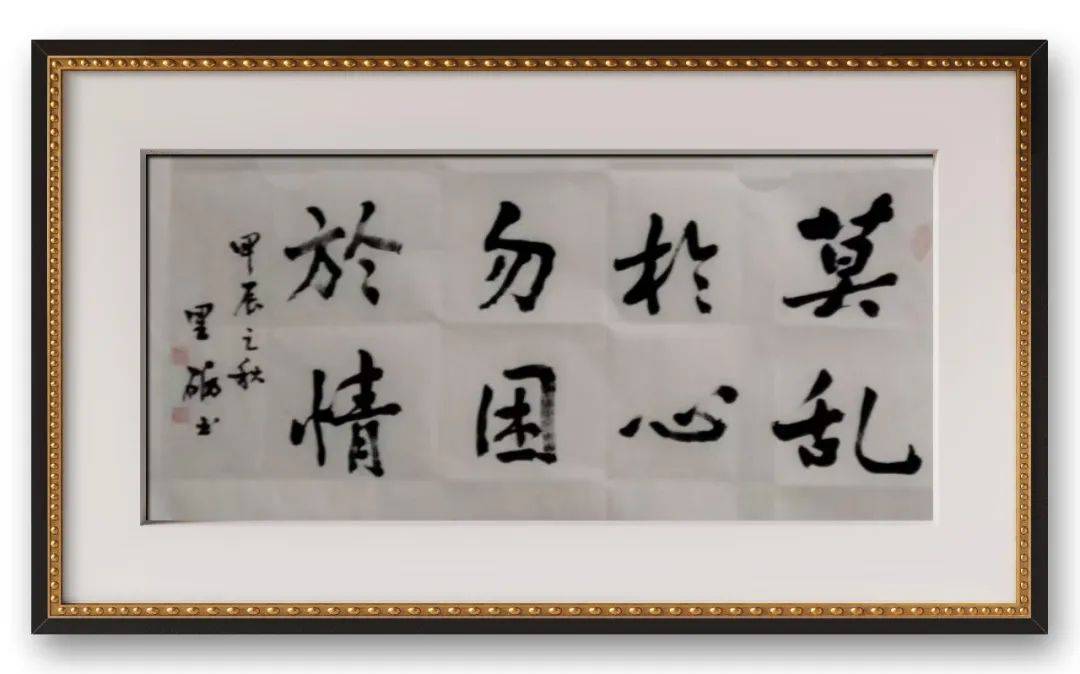 莫乱
於心
勿困
於情
甲辰之秋
墨砺书